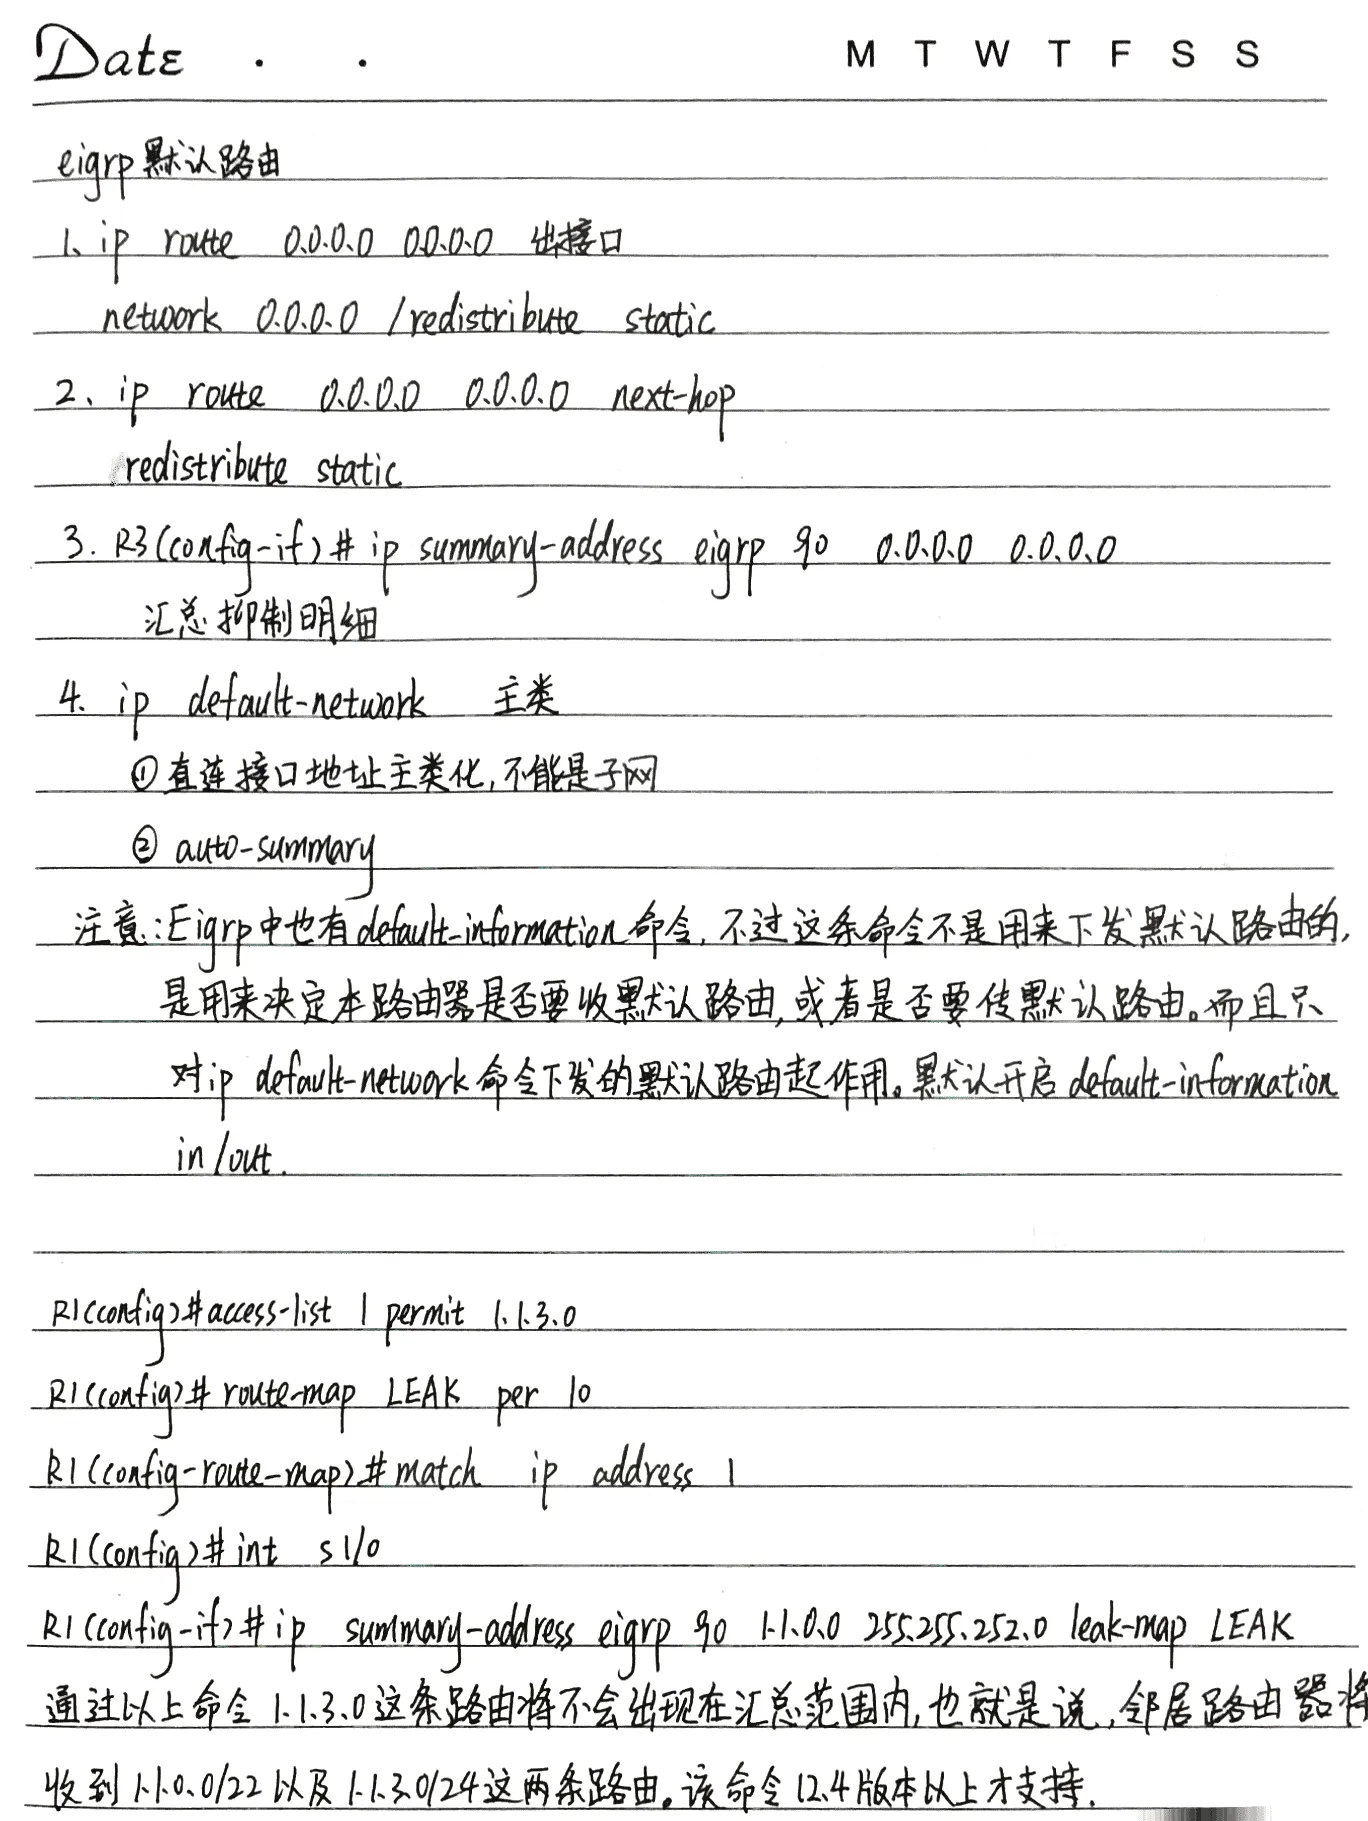 Date . . M T W T F S S
eigrp默认路由
1、ip route 0.0.0.0 0.0.0.0 出接口
network 0.0.0.0 /redistribute static
2、ip route 0.0.0.0 0.0.0.0 next-hop
redistribute static
3. R3(config-if)# ip summary-address eigrp 90 0.0.0.0 0.0.0.0
汇总抑制明细
4. ip default-network 主类
①直连接口地址主类化,不能是子网
② auto-summary
注意:Eigrp中也有default-information命令,不过这条命令不是用来下发默认路由的,
是用来决定本路由器是否要收默认路由,或者是否要传默认路由。而且只
对ip default-network命令下发的默认路由起作用。默认开启default-information
in/out.
R1(config)#access-list 1 permit 1.1.3.0
R1(config)# route-map LEAK per 10
R1(config-route-map)#match ip address 1
R1(config)#int s1/0
R1(config-if)#ip summary-address eigrp 90 1.1.0.0 255.255.252.0 leak-map LEAK
通过以上命令1.1.3.0这条路由将不会出现在汇总范围内,也就是说,邻居路由器将
收到1.1.0.0/22以及1.1.3.0/24这两条路由。该命令12.4版本以上才支持.